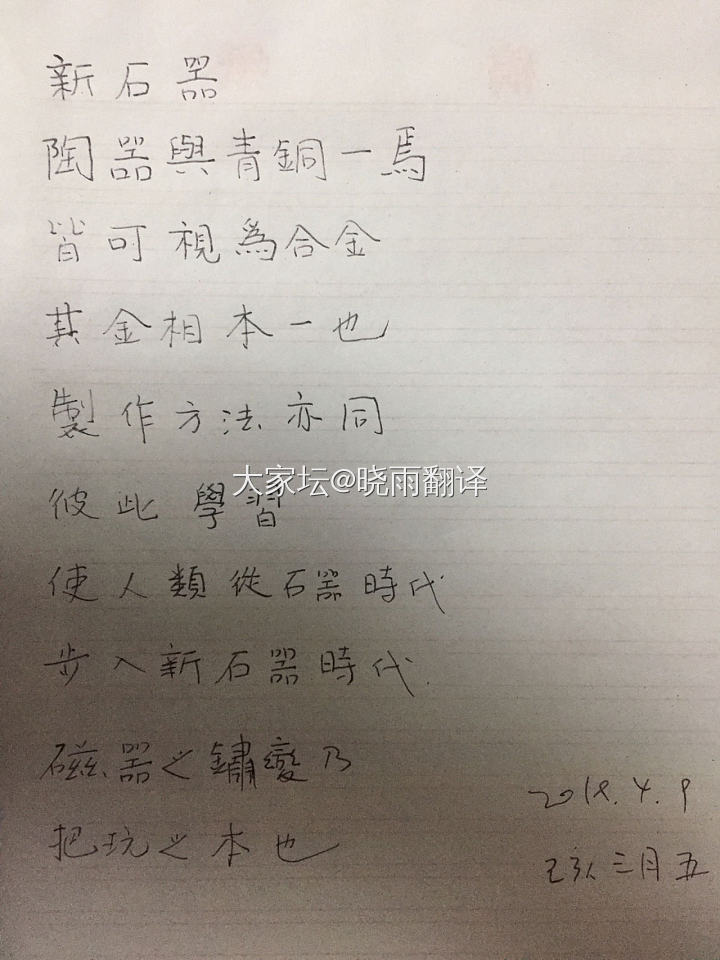 新石器
陶器與青銅一焉
皆可視為合金
其金相本一也
製作方法亦同
彼此學習
大家坛@晓雨翻译
使人類從石器時代
步入新石器時代.
磁器之鏽變乃
把玩之本也
2018.4.9
三月五